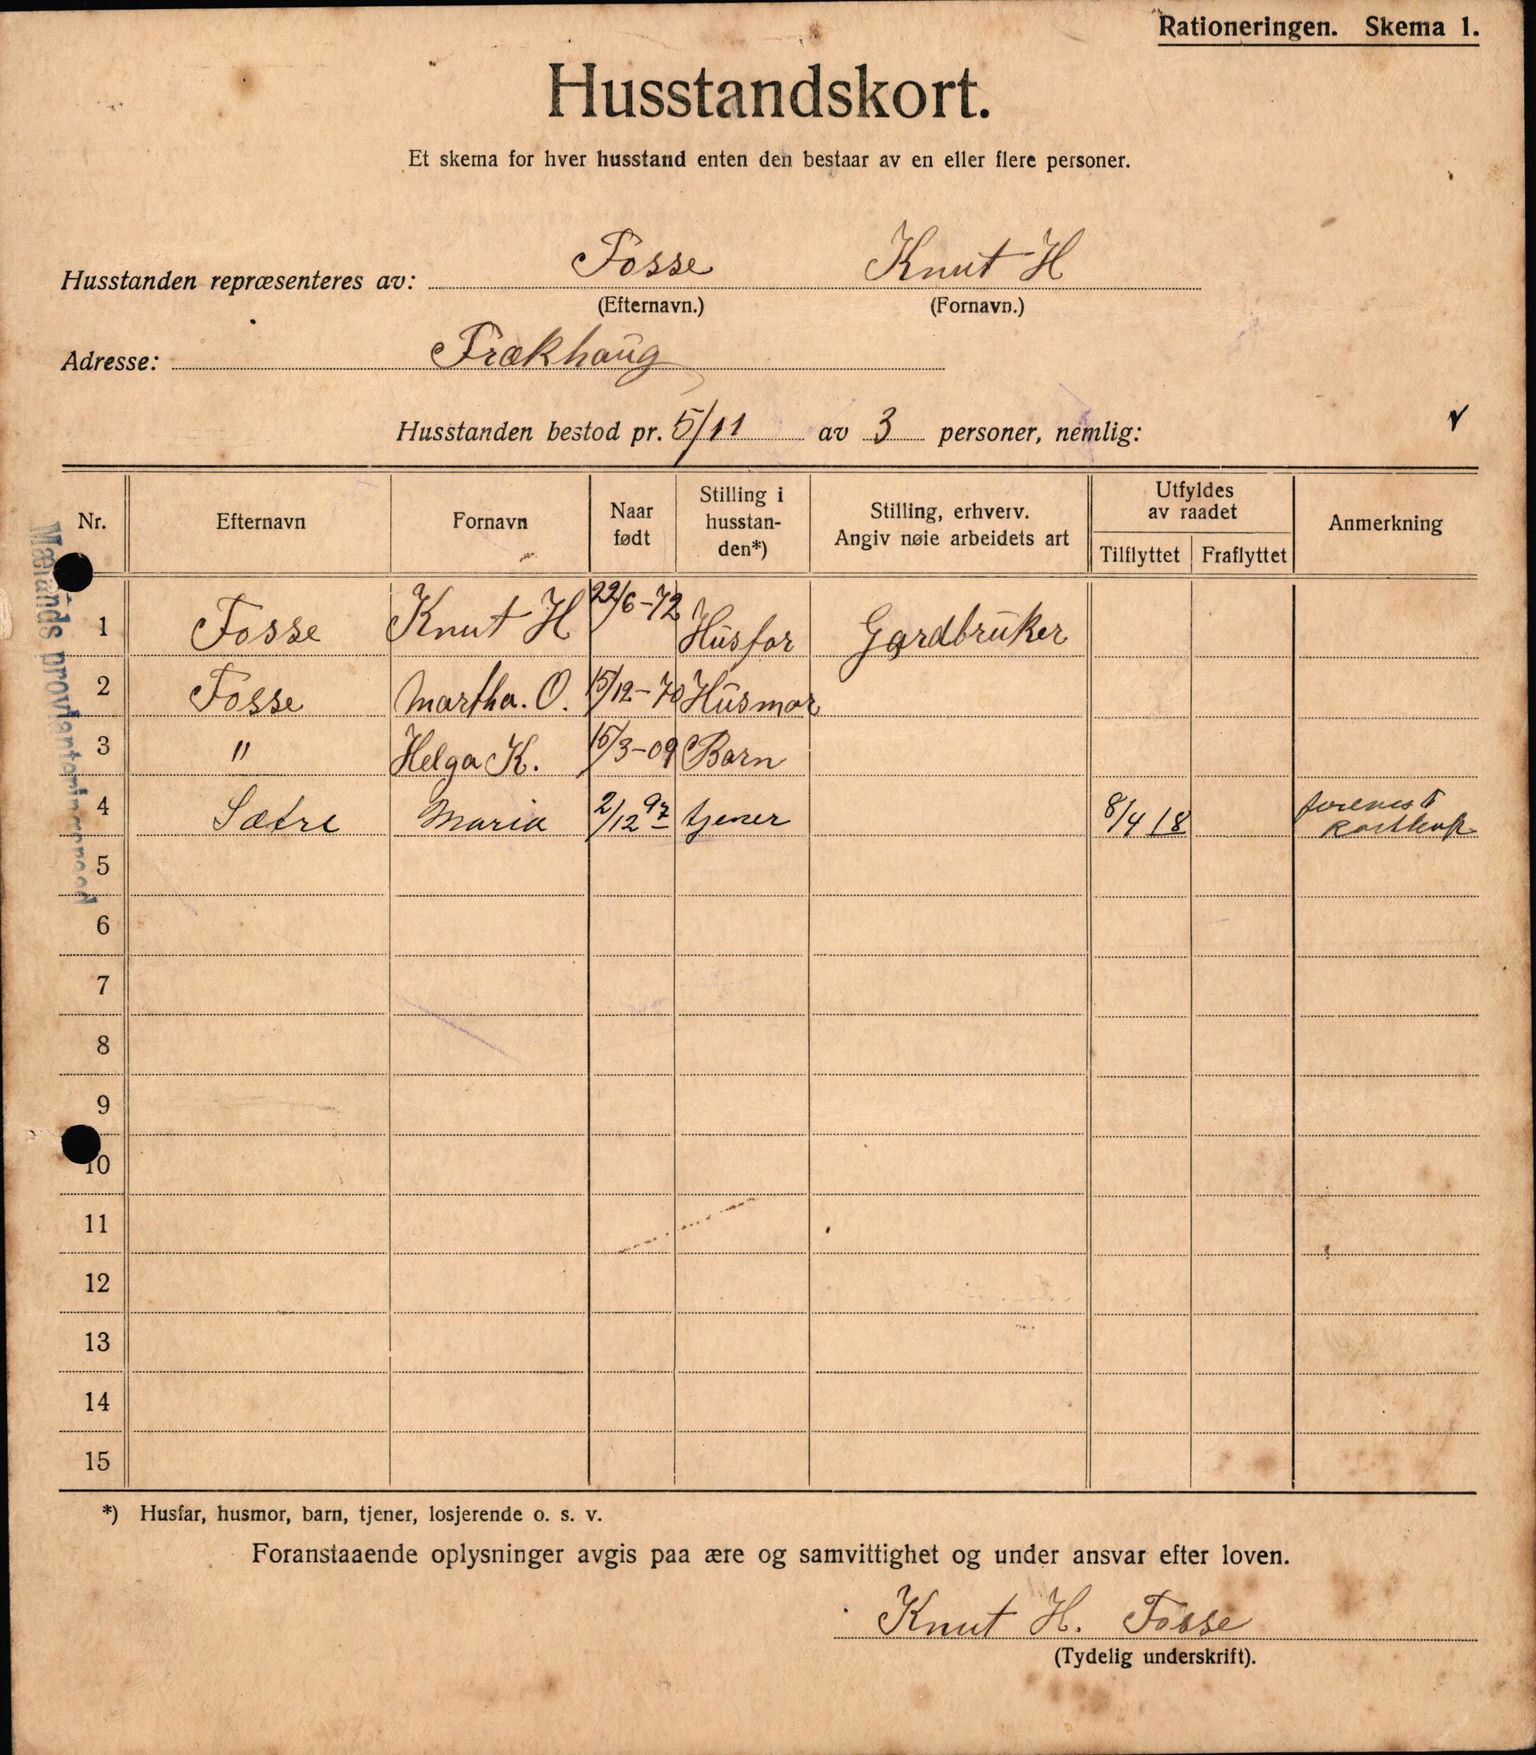 Rationeringen. Skema 1.
Husstandskort.
Et skema for hver husstand enten den bestaar av en eller flere personer.
Husstanden repræsenteres av: Fosse Knut H
(Efternavn.) (Fornavn.)
Adresse: Frækhaug
Husstanden bestod pr. 5/11 av 3 personer, nemlig:
Nr. Efternavn Fornavn Naar født Stilling i husstanden*) Stilling, erhverv. Angiv nøie arbeidets art Utfyldes av raadet Tilflyttet Fraflyttet Anmerkning
1 Fosse Knut H 22/6-72 Husfar Gardbruker
2 Fosse Martha. O. 15/12-70 Husmor
3 " Helga K. 15/3-09 Barn
4 Sætre Maria 2/12 97 tjener 8/4 18
5
6
7
8
9
10
11
12
13
14
15
*) Husfar, husmor, barn, tjener, losjerende o. s. v.
Foranstaaende oplysninger avgis paa ære og samvittighet og under ansvar efter loven.
Knut H. Fosse
(Tydelig underskrift).
Mælands provianteringsraad